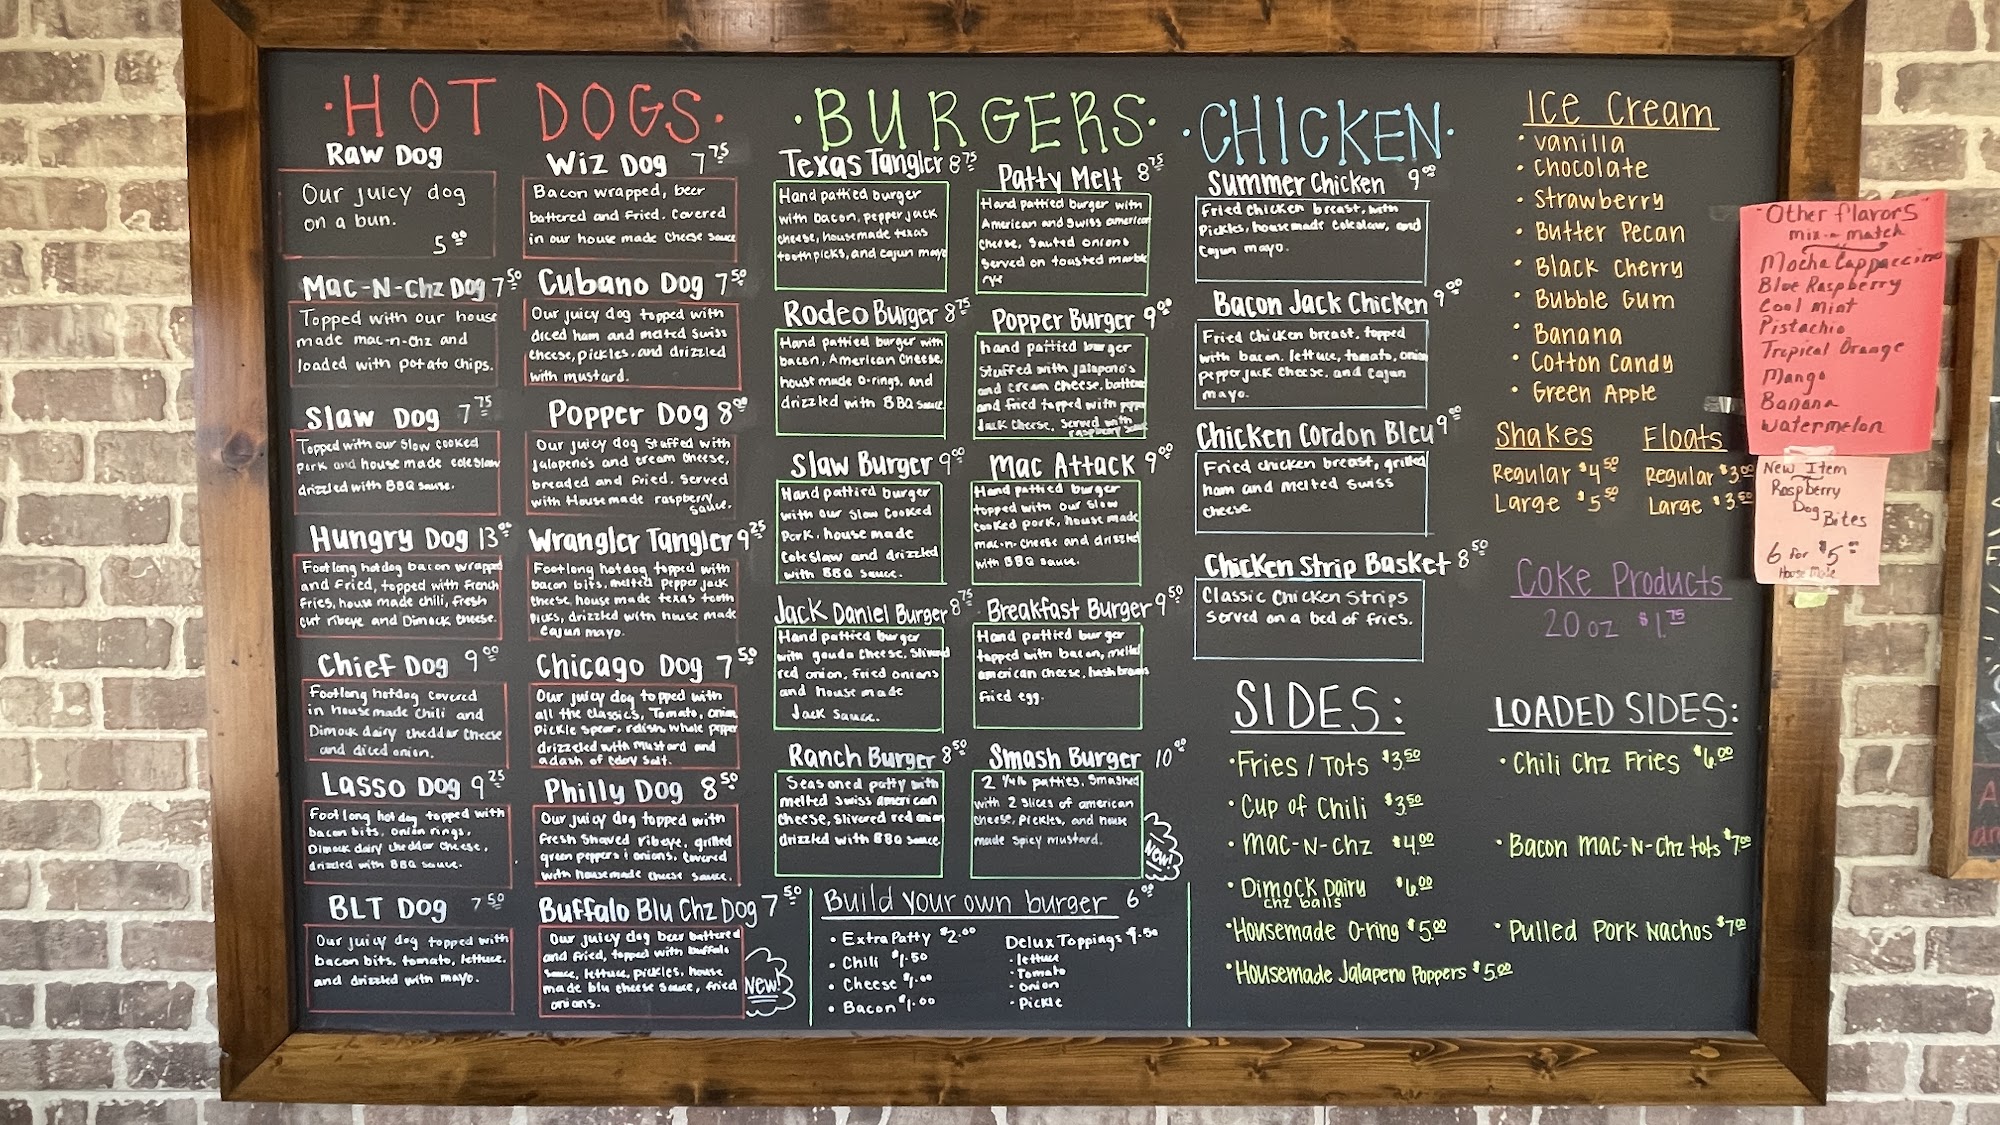 ·HOT DOGS·
Raw Dog
Our juicy dog
on a bun.
5⁰⁰
Mac-N-Chz Dog 7⁵⁰
Topped with our house
made mac-n-chz and
loaded with potato chips.
Slaw Dog 7⁷⁵
Topped with our slow cooked
pork and house made coleslaw
drizzled with BBQ sauce.
Hungry Dog 13⁰⁰
Footlong hotdog bacon wrapped
and Fried, topped with French
fries, house made chili, fresh
cut ribeye and Dimock cheese.
Chief Dog 9⁰⁰
Footlong hotdog covered
in housemade chili and
Dimock dairy cheddar cheese
and diced onion.
Lasso Dog 9²⁵
Foot long hot dog topped with
bacon bits, onion rings,
Dimock dairy cheddar cheese,
drizzled with BBQ sauce.
BLT Dog 7⁵⁰
Our juicy dog topped with
bacon bits, tomato, lettuce,
and drizzled with mayo.
Wiz Dog 7⁷⁵
Bacon wrapped, beer
battered and fried. Covered
in our house made cheese sauce
Cubano Dog 7⁵⁰
Our juicy dog topped with
diced ham and melted swiss
cheese, pickles, and drizzled
with mustard.
Popper Dog 8⁰⁰
Our juicy dog stuffed with
jalapeno's and cream cheese,
breaded and fried. Served
with Housemade raspberry
sauce.
Wrangler Tangler 9²⁵
Footlong hotdog topped with
bacon bits, melted pepper jack
cheese, house made texas tooth
picks, drizzled with house made
cajun mayo.
Chicago Dog 7⁵⁰
Our juicy dog topped with
all the classics, Tomato, onion
pickle spear, relish, whole pepper
drizzled with mustard and
a dash of celery salt.
Philly Dog 8⁵⁰
Our juicy dog topped with
fresh shaved ribeye, grilled
green peppers & onions, covered
with housemade cheese sauce.
Buffalo Blu Chz Dog 7⁵⁰
Our juicy dog beer battered
and fried, topped with buffalo
sauce, lettuce, pickles, house
made blu cheese sauce, fried
onions.
NEW!
·BURGERS·
Texas Tangler 8⁷⁵
Hand pattied burger
with bacon, pepper jack
cheese, housemade texas
toothpicks, and cajun mayo
Rodeo Burger 8⁷⁵
Hand pattied burger with
bacon, American cheese,
house made o-rings, and
drizzled with BBQ sauce
Slaw Burger 9⁰⁰
Hand pattied burger
with our slow cooked
pork, house made
coleslaw and drizzled
with BBQ sauce.
Jack Daniel Burger 8⁷⁵
Hand pattied burger
with gouda cheese, slivered
red onion, fried onions
and house made
Jack sauce.
Ranch Burger 8⁵⁰
Seasoned patty with
melted swiss american
cheese, slivered red onion
drizzled with BBQ sauce
Patty Melt 8⁷⁵
Hand pattied burger with
American and swiss american
cheese, sauted onions
served on toasted marble
rye
Popper Burger 9⁰⁰
hand pattied burger
stuffed with jalapano's
and cream cheese, battered
and fried topped with pepper
jack cheese, served with
raspberry sauce
Mac Attack 9⁰⁰
Hand pattied burger
topped with our slow
cooked pork, house made
mac-n-cheese and drizzled
with BBQ sauce.
Breakfast Burger 9⁵⁰
Hand pattied burger
topped with bacon, melted
american cheese, hashbrowns
fried egg.
Smash Burger 10⁰⁰
2 1/4lb patties, smashed
with 2 slices of american
cheese, pickles, and house
made spicy mustard.
NEW!
Build your own burger 6⁰⁰
• Extra Patty $2.00
• Chili $1.50
• Cheese $1.00
• Bacon $1.00
Delux Toppings $.50
- lettuce
- Tomato
- onion
- Pickle
·CHICKEN·
Summer Chicken 9⁰⁰
Fried chicken breast, with
pickles, housemade coleslaw, and
cajun mayo.
Bacon Jack Chicken 9⁰⁰
Fried chicken breast, topped
with bacon, lettuce, tomato, onion
pepperjack cheese, and cajun
mayo.
Chicken Cordon Bleu 9⁰⁰
Fried chicken breast, grilled
ham and melted swiss
cheese
Chicken Strip Basket 8⁵⁰
Classic Chicken Strips
served on a bed of fries.
Ice Cream
• vanilla
• chocolate
• Strawberry
• Butter Pecan
• Black Cherry
• Bubble Gum
• Banana
• Cotton Candy
• Green Apple
Shakes
Regular $4⁵⁰
Large $5⁵⁰
Floats
Regular $3.⁰⁰
Large $3.⁵⁰
Coke Products
20 oz $1.⁷⁵
SIDES:
• Fries / Tots $3.⁵⁰
• Cup of Chili $3.⁵⁰
• Mac-N-Chz $4.⁰⁰
• Dimock Dairy $6.⁰⁰
chz balls
• Housemade O-ring $5.⁰⁰
• Housemade Jalapeno Poppers $5.⁰⁰
LOADED SIDES:
• Chili Chz Fries $6.⁰⁰
• Bacon Mac-N-Chz tots $7.⁰⁰
• Pulled Pork Nachos $7.⁰⁰
"Other flavors"
mix-n-match
Mocha Cappaccino
Blue Raspberry
Cool Mint
Pistachio
Tropical Orange
Mango
Banana
Watermelon
New Item
Raspberry
Dog Bites
6 for $5⁰⁰
House Made